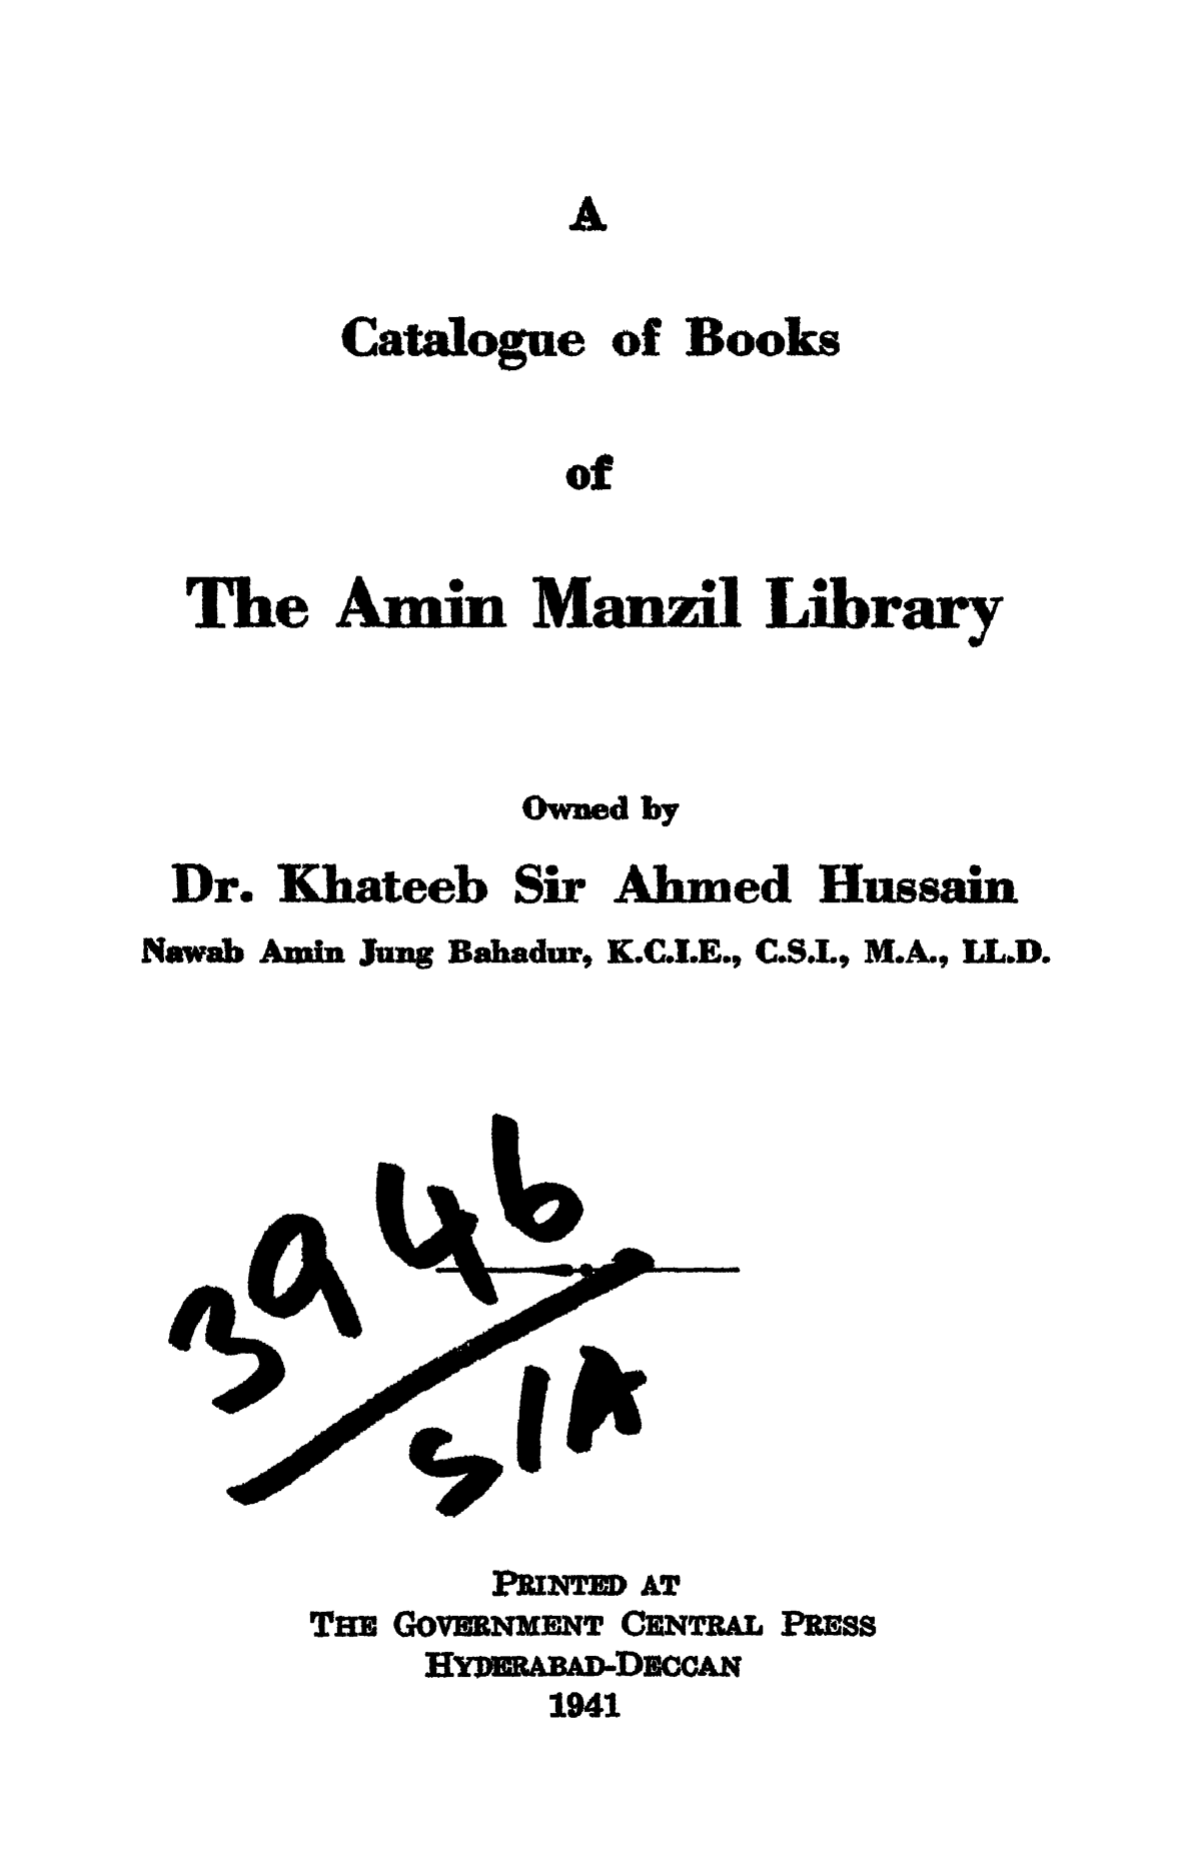 A
Catalogue of Books
of
The Amin Manzil Library
Owned by
Dr. Khateeb Sir Ahmed Hussain
Nawab Amin Jung Bahadur, K.C.I.E., C.S.I., M.A., LL.D.
3946
S/A
PRINTED AT
THE GOVERNMENT CENTRAL PRESS
HYDERABAD-DECCAN
1941